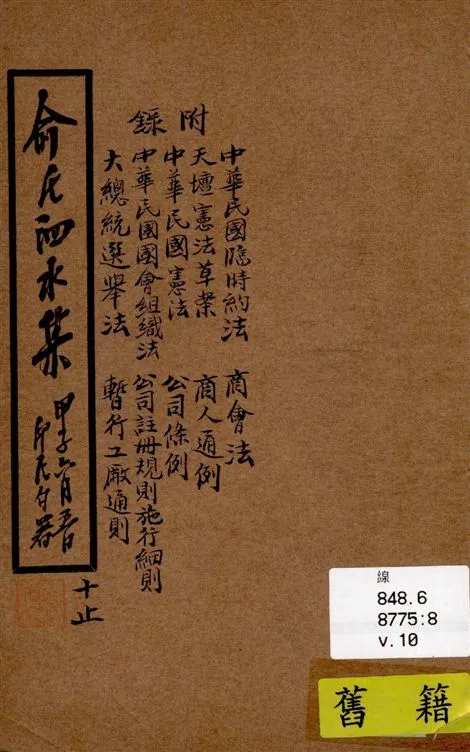 附錄
中華民國臨時約法
天壇憲法草案
中華民國憲法
中華民國國會組織法
大總統選舉法
商會法
商人通例
公司條例
公司註冊規則施行細則
暫行工廠通則
俞氏泗水集
甲子六月
氏自署
十止
線
848.6
8775:8
v.10
舊籍